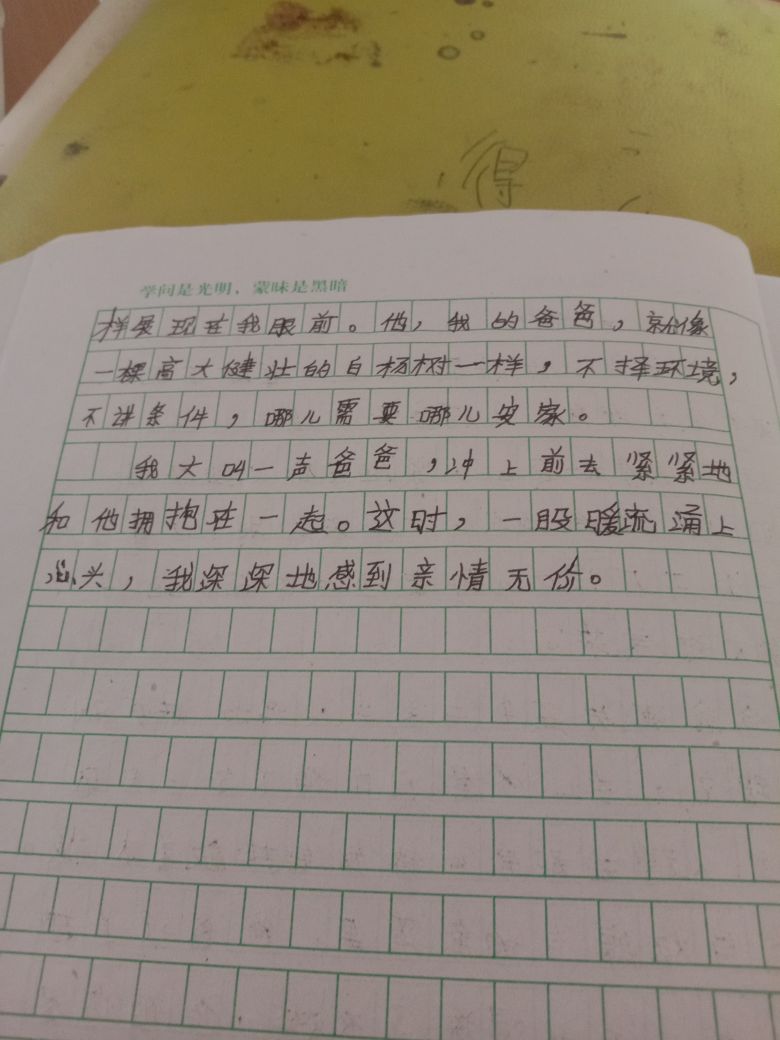 得
学问是光明，蒙昧是黑暗
样展现在我眼前。他，我的爸爸，就像
一棵高大健壮的白杨树一样，不择环境，
不讲条件，哪儿需要哪儿安家。
我大叫一声爸爸，冲上前去紧紧地
和他拥抱在一起。这时，一股暖流涌上
心头，我深深地感到亲情无价。